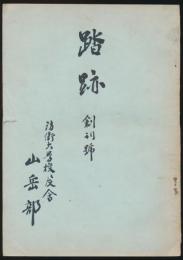 踏跡
創刊號
防衛大學校校友會
山岳部